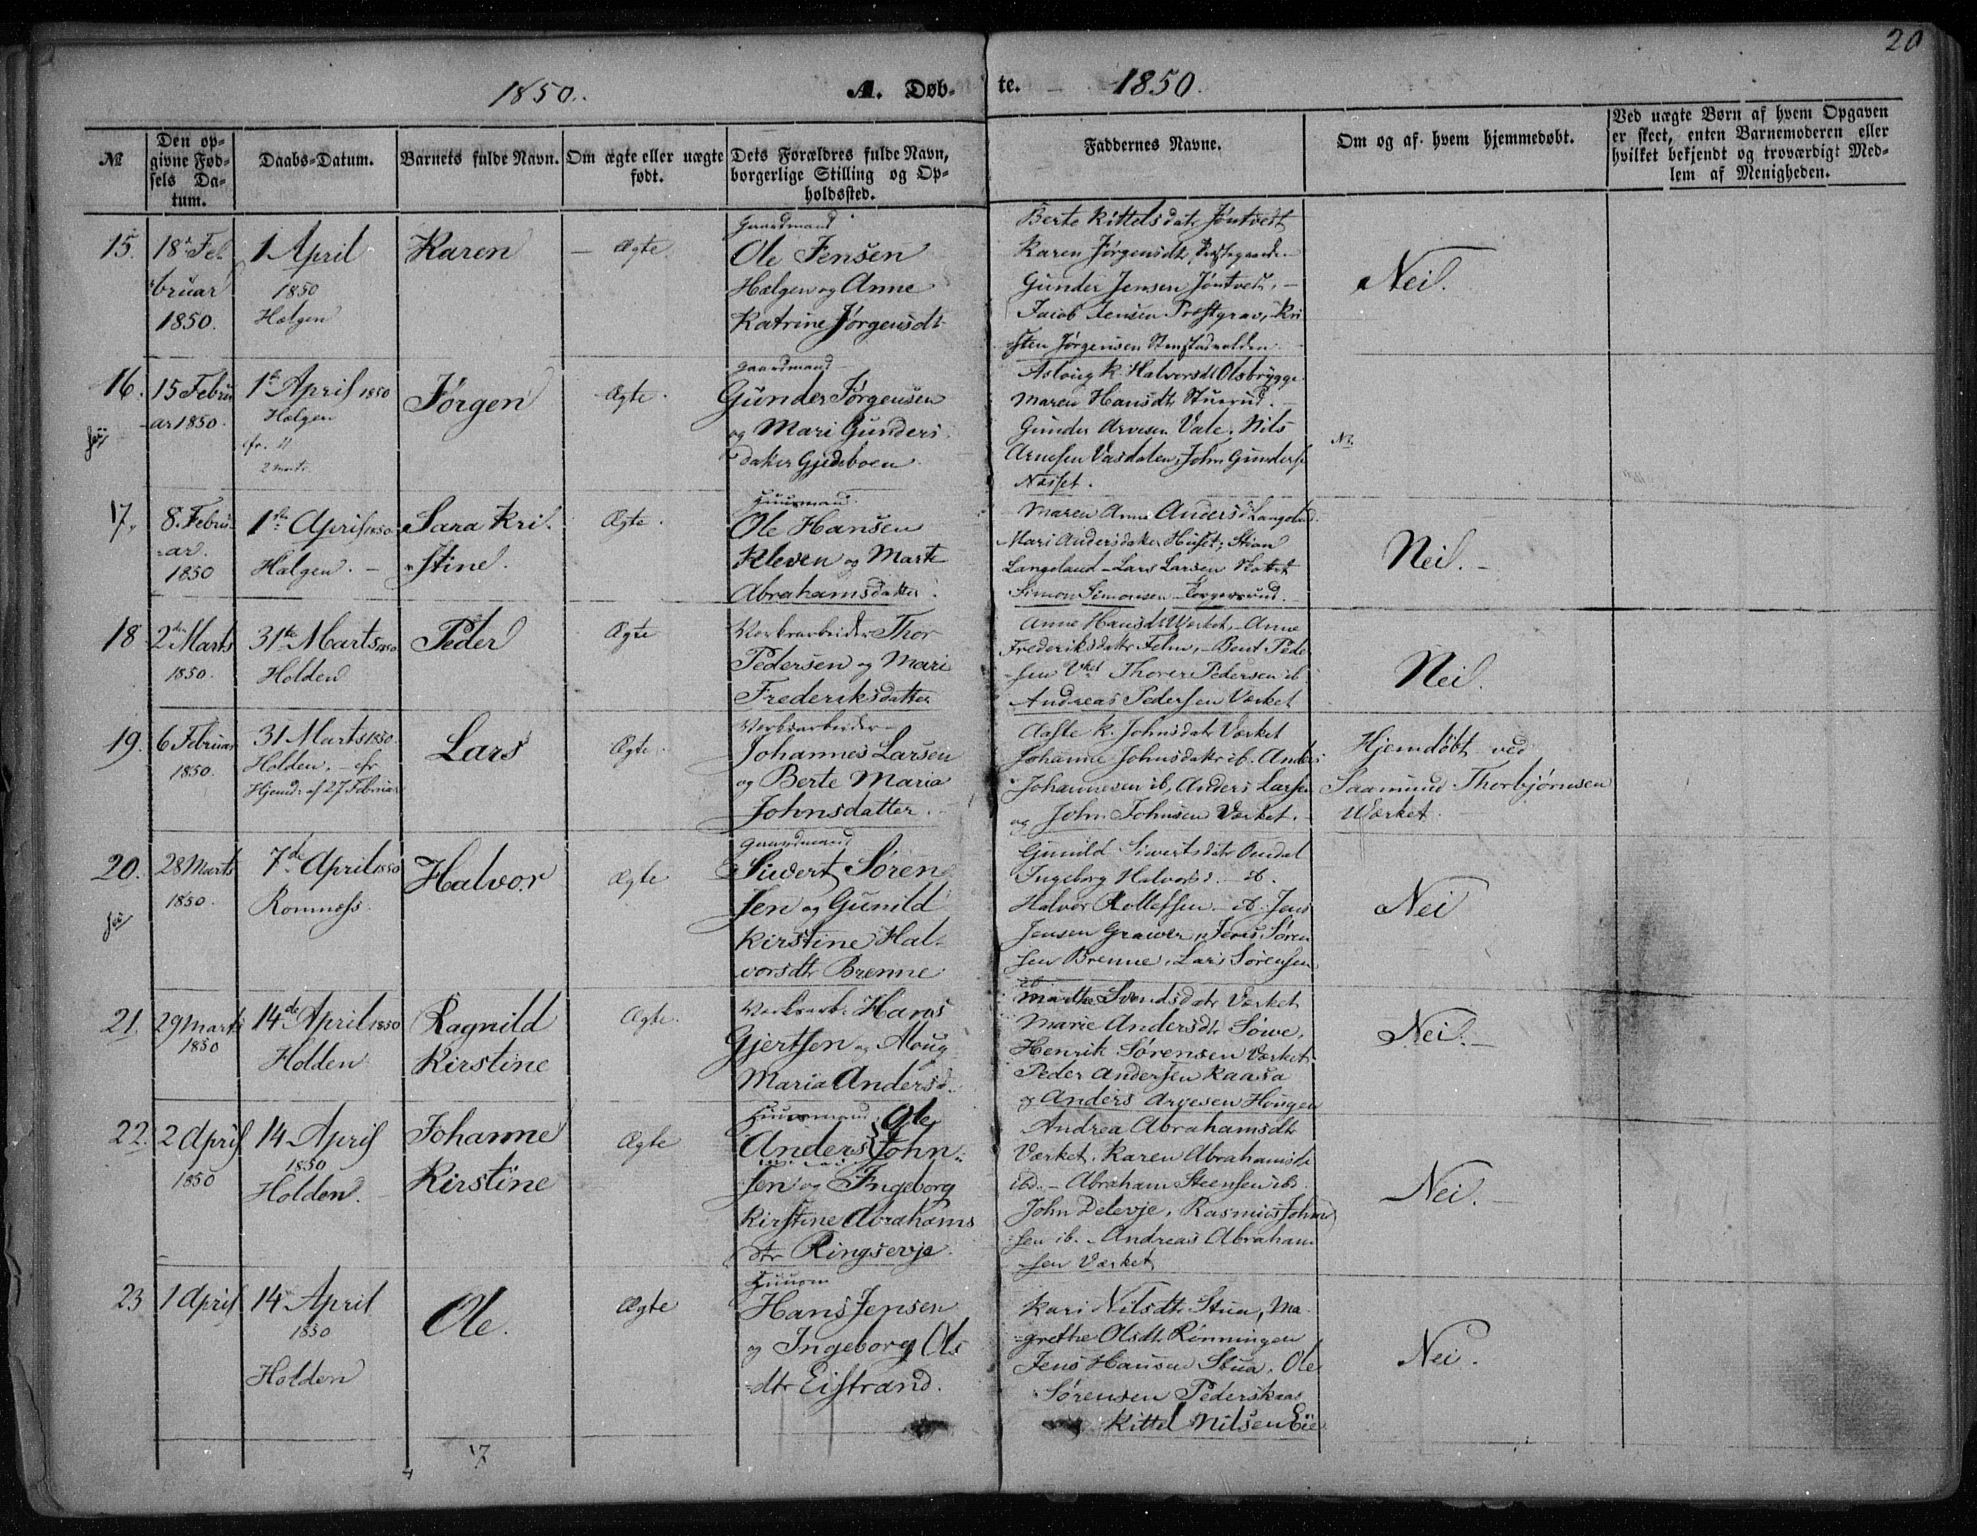 20
1850. A. Døb- te. 1850.
No
Den op-
givne Fød-
sels Da-
tum.
Daabs-Datum.
Barnets fulde Navn.
Om ægte eller uægte
født.
Dets Forældres fulde Navn,
borgerlige Stilling og Op-
holdssted.
Faddernes Navne.
Om og af hvem hjemmedøbt.
Ved uægte Børn af hvem Opgaven
er skeet, enten Barnemoderen eller
hvilket bekjendt og troværdigt Med-
lem af Menigheden.
15.
18de Fe-
bruar
1850.
1 April
1850
Helgen
Karen
Ægte.
Gaardmand
Ole Jensen
Helgen og Anne
Katrine Jørgensdt
Berte Kittelsdatr Jøntvedt
Karen Jørgensdtr
Gunder Jensen Jøntvet, -
Jacob Jensen Præstgrav, Kri
sten Jørgensen
16.
15 Febru
ar 1850.
1ste April 1850
Helgen
fr.
2 Marts
Jørgen
Ægte.
Gaardmand
Gunder Jørgensen
og Mari Gunders
datter Gjedeboen
Aslaug K. Halvorsdt Olsbrygge
Maren Hansdtr
Gunder Arvesen Vale. Nils
Arnesen Vasdalen, John Gunderse
Næset.
N.
17.
8. Febru-
ar.
1850
1ste April 1850
Helgen. -
Sara Kri-
stine.
Ægte.
Huusmand.
Ole Hansen
Kleven og Marte
Abrahamsdatter.
Maren Anne Andersd Langelud.
Mari Andersdatter Huset, Stian
Langeland - Lars Larsen
Simon Simonsen
Neil. -
18
2den Marts
1850.
31te Marts 1850
Holden
Peder
Ægte
Værkarbeider Thor
Pedersen og Mari
Frederiksdatter
Anne Hansdt Værket, - Anne
Frederiksdatr Fehn, - Bent Pede
sen Vket Thorer Pedersen ib
Andreas Pedersen Værket
Nei.
19.
6 Februar
1850.
31 Marts 1850.
Holden. - fr
Hjemd: af 27 Februar
Lars
Ægte.
Værksarbeider-
Johannes Larsen
og Berte Maria
Johnsdatter.
Aaste K. Johnsdatr Værket
Johanne Johnsdatr ib. Anders
Johannesen ib, Anders Larsen
og John Johnsen Værket. -
Hjemdøbt ved
Saamund Thorbjørnsen
Værket.
20.
28 Marts
1850.
7de April 1850
Romnæss.
Halvor
Ægte
Gaardmand
Siwert Søren
sen og Gunild
Kirstine Hal-
vorsdtr Brenne
Gunild Siwertsdatr Omdal
Ingeborg Halvorsd. - ib.
Halvor Rollefsen - ib. Jens
Jensen Graver, Jens Søren
sen Brenne, Lars Sørensen
ib
Nei
21.
29 Marts
1850
14de April 1850
Holden
Ragnild
Kirstine
Ægte.
Værkarb: Hans
Gjertsen og Aloug
Maria Andersd.
Marthe Svendsdatr Værket
Marie Andersdtr Søwe,
Henrik Sørensen Værket
Peder Andersen Kaasa
og Anders Arvesen Hougen
Nei. -
22.
2 April
1850
14 April
1850
Holden. -
Johanne
Kirstine
Ægte
Huusmand. Ole
Anders John-
sen og Ingeborg
Kirstine Abrahams
dtr Ringsevje.
Andrea Abrahamsdtr
Værket. Karen Abrahamsdt
ibd. - Abraham Steensen ibd.
John Delevje, Rasmus Johan
sen ib. - Andreas Abraham
sen Værket
Nei. -
23
1 April
14 April
1850
Holden
Ole.
Ægte
Huusm
Hans Jensen
og Ingeborg Ols
dtr Eistrand.
Kari Nilsdtr Stua, Ma-
grethe Olsdtr Rønningen
Jens Hansen Stua. Ole
Sørensen Pederskaas
Kittel Nilsen Eie
Nei.
17